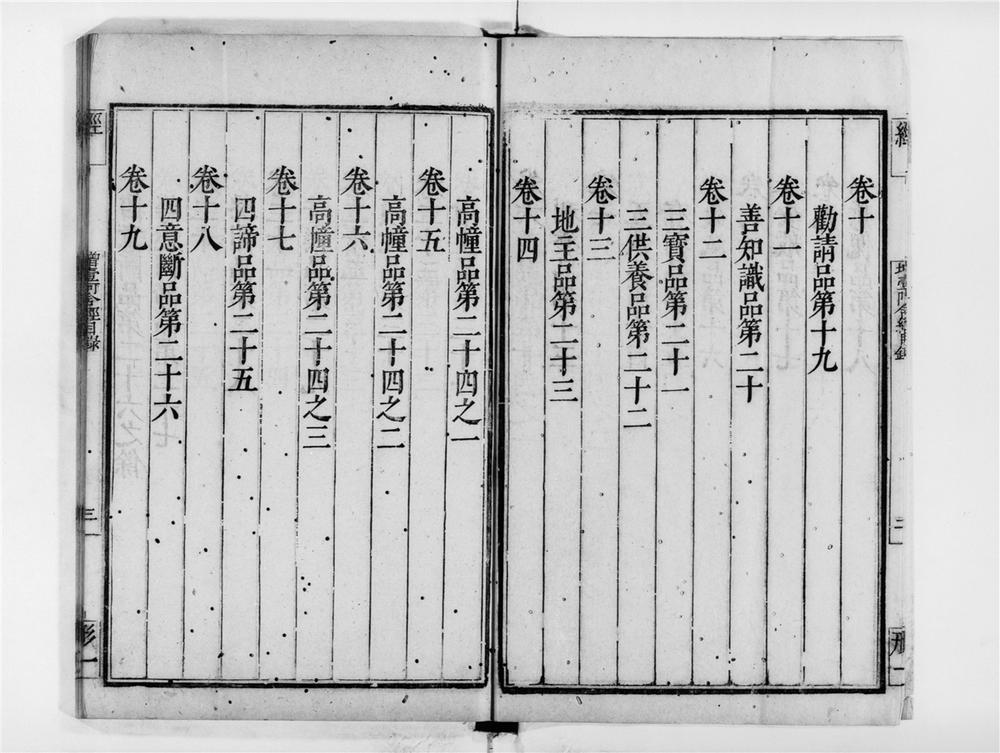 卷十
勸請品第十九
卷十一
善知識品第二十
卷十二
三寶品第二十一
三供養品第二十二
卷十三
地主品第二十三
卷十四
高幢品第二十四之一
卷十五
高幢品第二十四之二
卷十六
高幢品第二十四之三
卷十七
四諦品第二十五
卷十八
四意斷品第二十六
卷十九
經
增壹阿含經目錄
三
形一